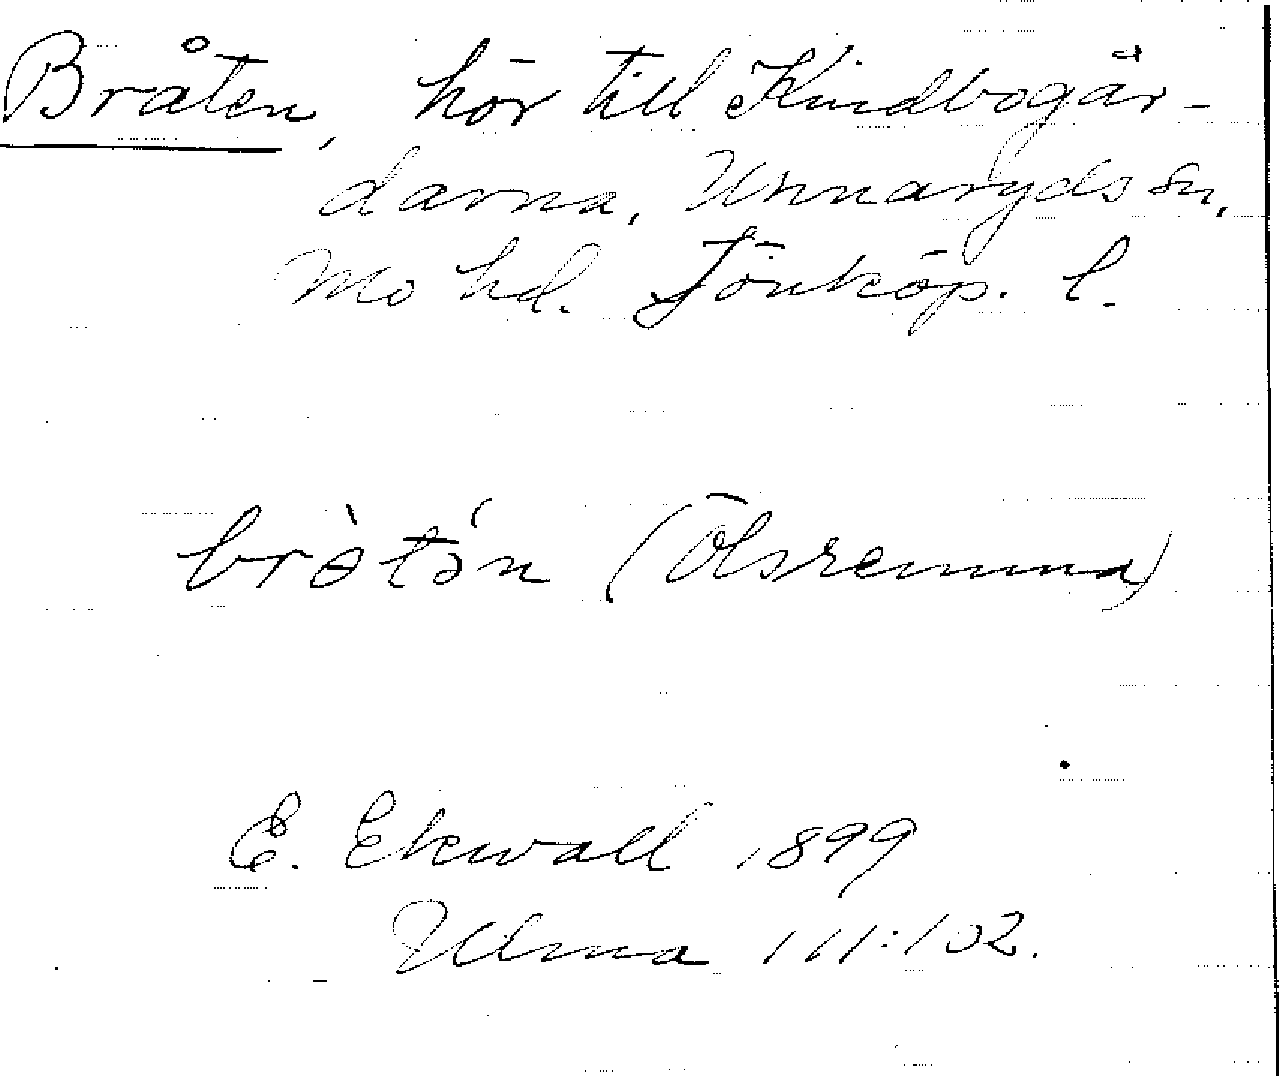 Bråten, hör till Kindbogår-
darna, Unnaryds sn,
Mo hd. Jönköp. l.
brò̀tə́n (Ölsremma)
E. Ekwall 1899
Ulma 111:102.